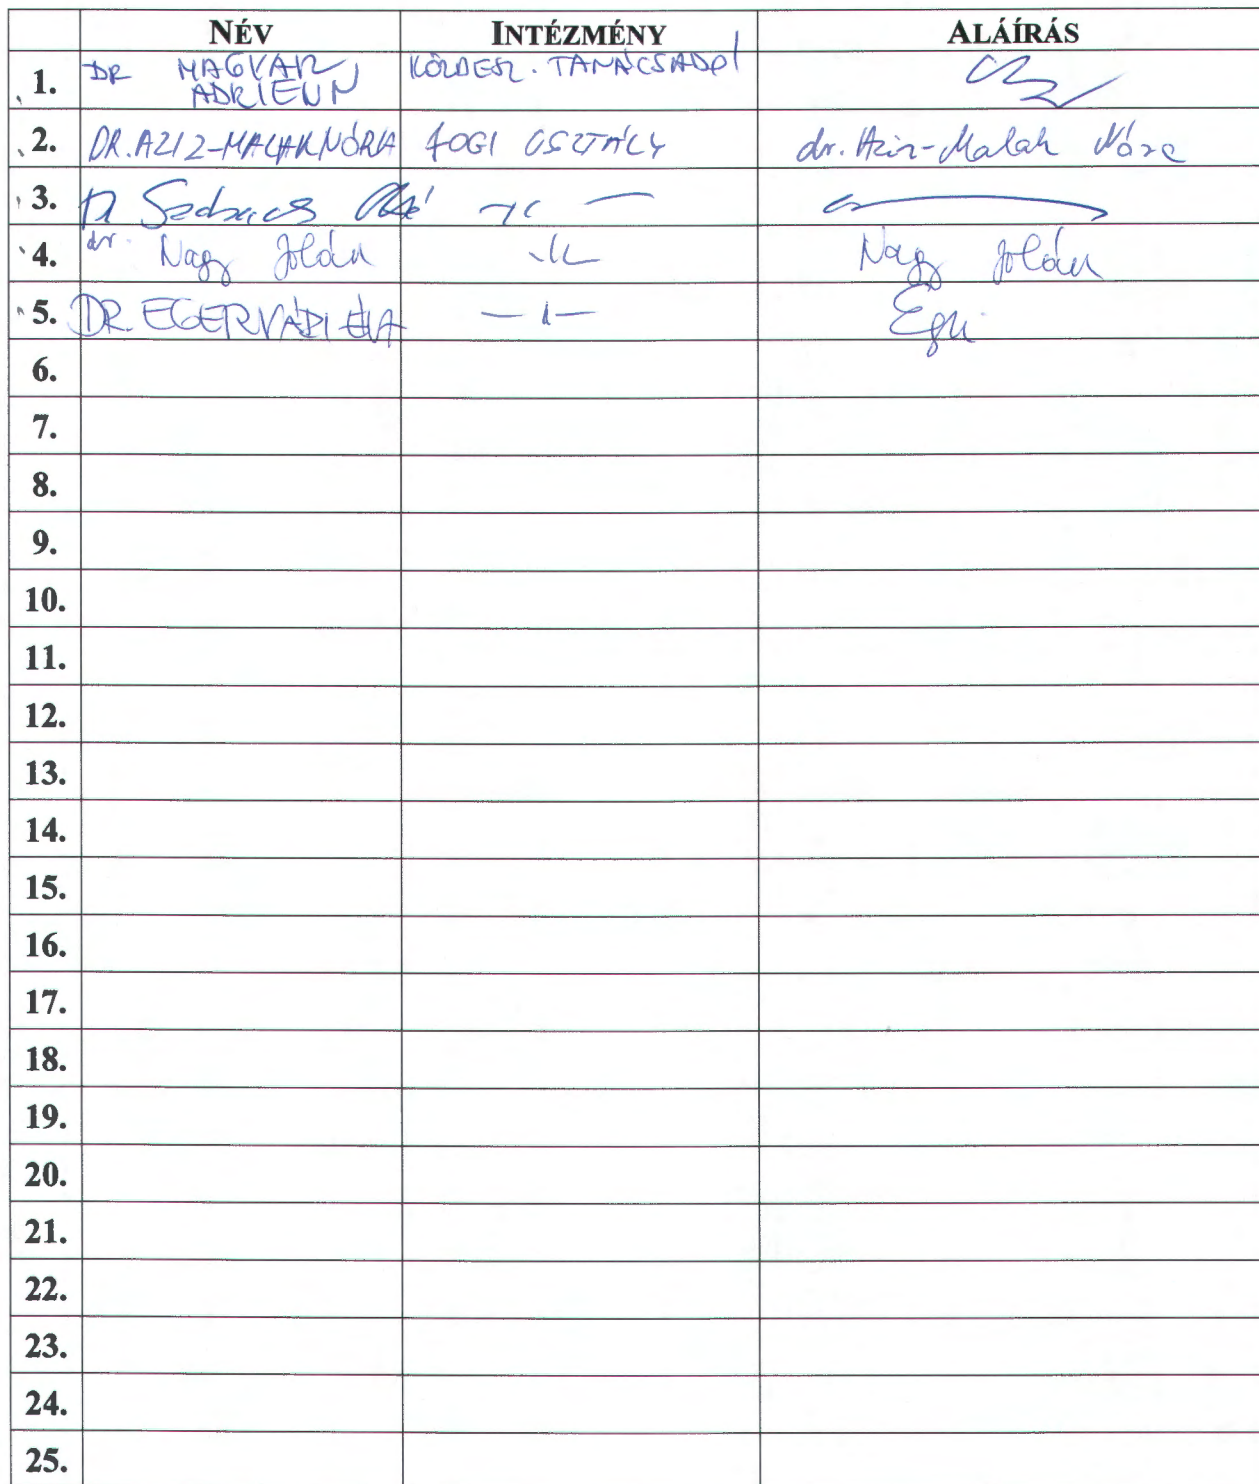 NÉV INTÉZMÉNY ALÁÍRÁS
1. DR MAGYAR TANÁCSADÓ
ADRIENN
2. DR. AZIZ-MALAK NÓRA FOGI OSZTÁLY dr. Aziz-Malak Nóra
3. Dr
4. dr. Nagy Jolán -〃- Nagy Jolán
5. DR. EGERVÁRI ÉVA -〃-
6.
7.
8.
9.
10.
11.
12.
13.
14.
15.
16.
17.
18.
19.
20.
21.
22.
23.
24.
25.